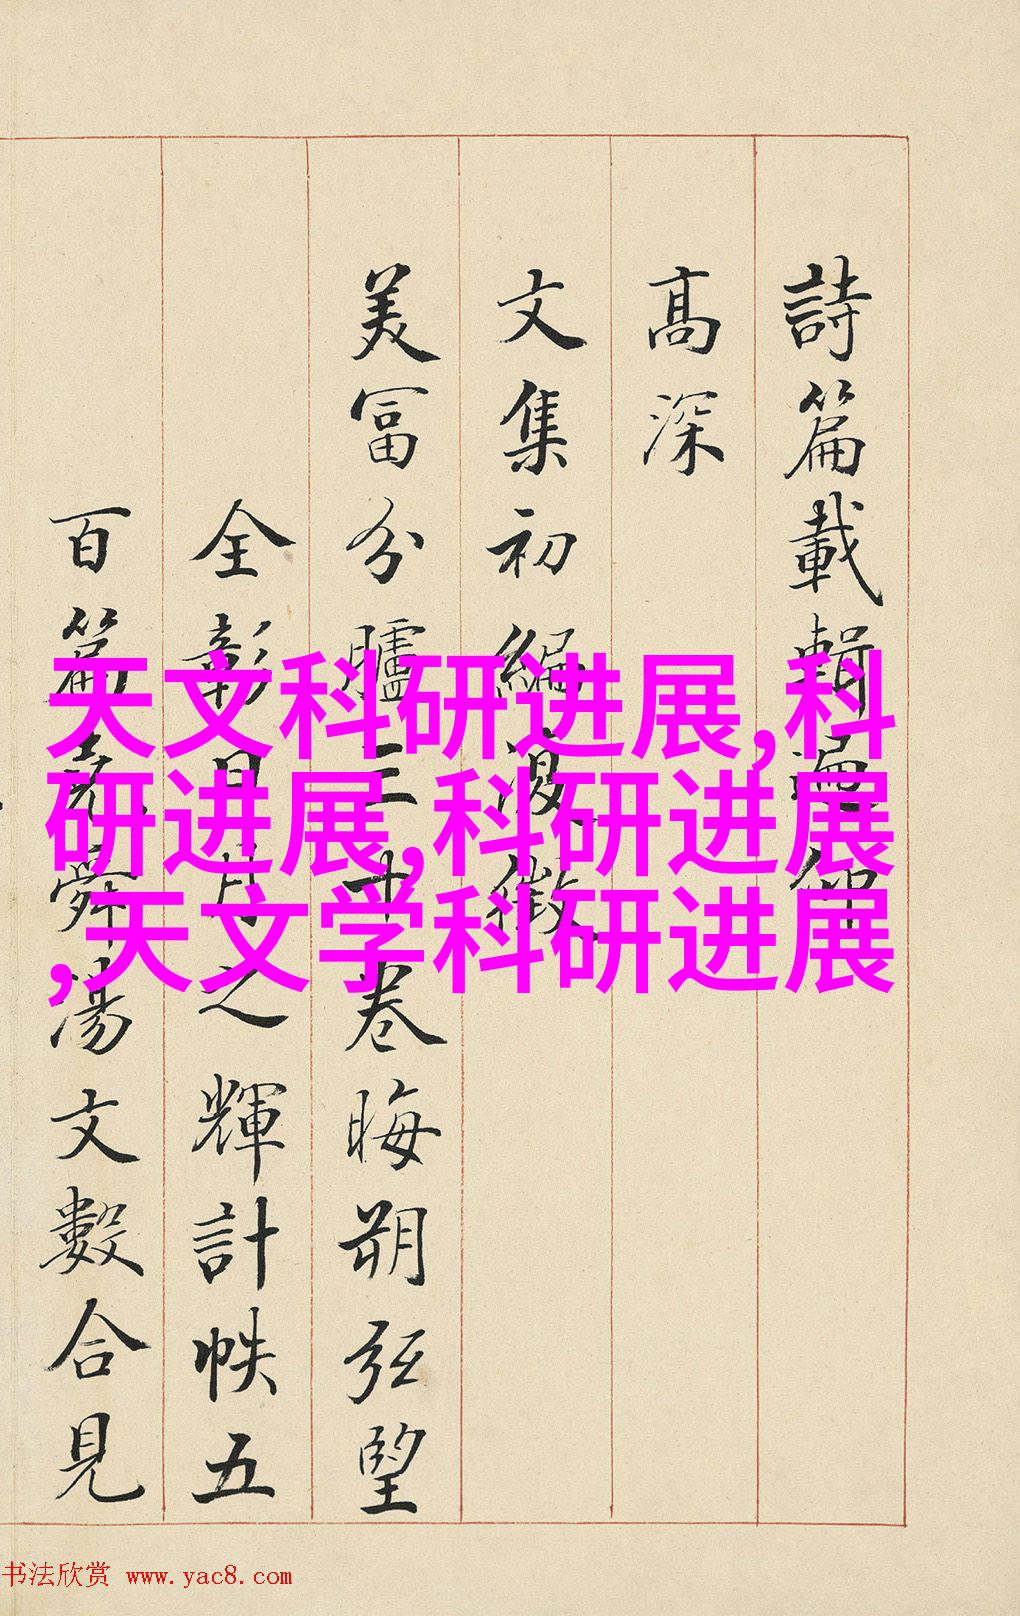 詩篇載輯遍仰
高深
文集初編復徵
美富分臚三十卷晦朔弦望
全彰日月之輝計帙五
百篇堯舜湯文數合見
天文科研进展,科
研进展,科研进展
,天文学科研进展
书法欣赏 www.yac8.com